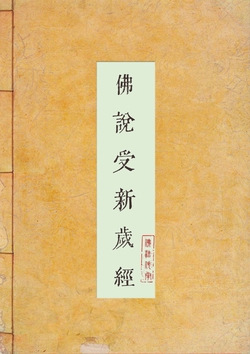 佛說受新歲經